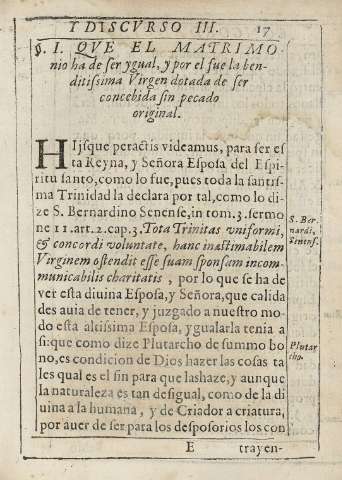 Y DISCVRSO III. 17
§. I. QVE EL MATRIMO
nio ha de ser ygual, y por el fue la ben
ditissima Virgen dotada de ser
concebida sin pecado
original.
HIjsque peractis videamus, para ser es
ta Reyna, y Señora Esposa del Espi
ritu santo, como lo fue, pues toda la santis
ma Trinidad la declara por tal, como lo di
ze S. Bernardino Senense, in tom. 3. sermo
ne 11. art. 2. cap. 3. Tota Trinitas vniformi,
& concordi voluntate, hanc inæstimabilem
Virginem ostendit esse suam sponsam incom-
municabilis charitatis, por lo que se ha de
ver esta diuina Esposa, y Señora, que calida
des auia de tener, y juzgado a nuestro mo
do esta altissima Esposa, ygualarla tenia a
si: que como dize Plutarcho de summo bo
no, es condicion de Dios hazer las cosas ta
les qual es el fin para que las haze, y aunque
la naturaleza es tan desigual, como de la di
uina a la humana, y de Criador a criatura,
por auer de ser para los desposorios los con
E trayen-
S. Ber-
nardi,
Senens.
Plutar
cho.